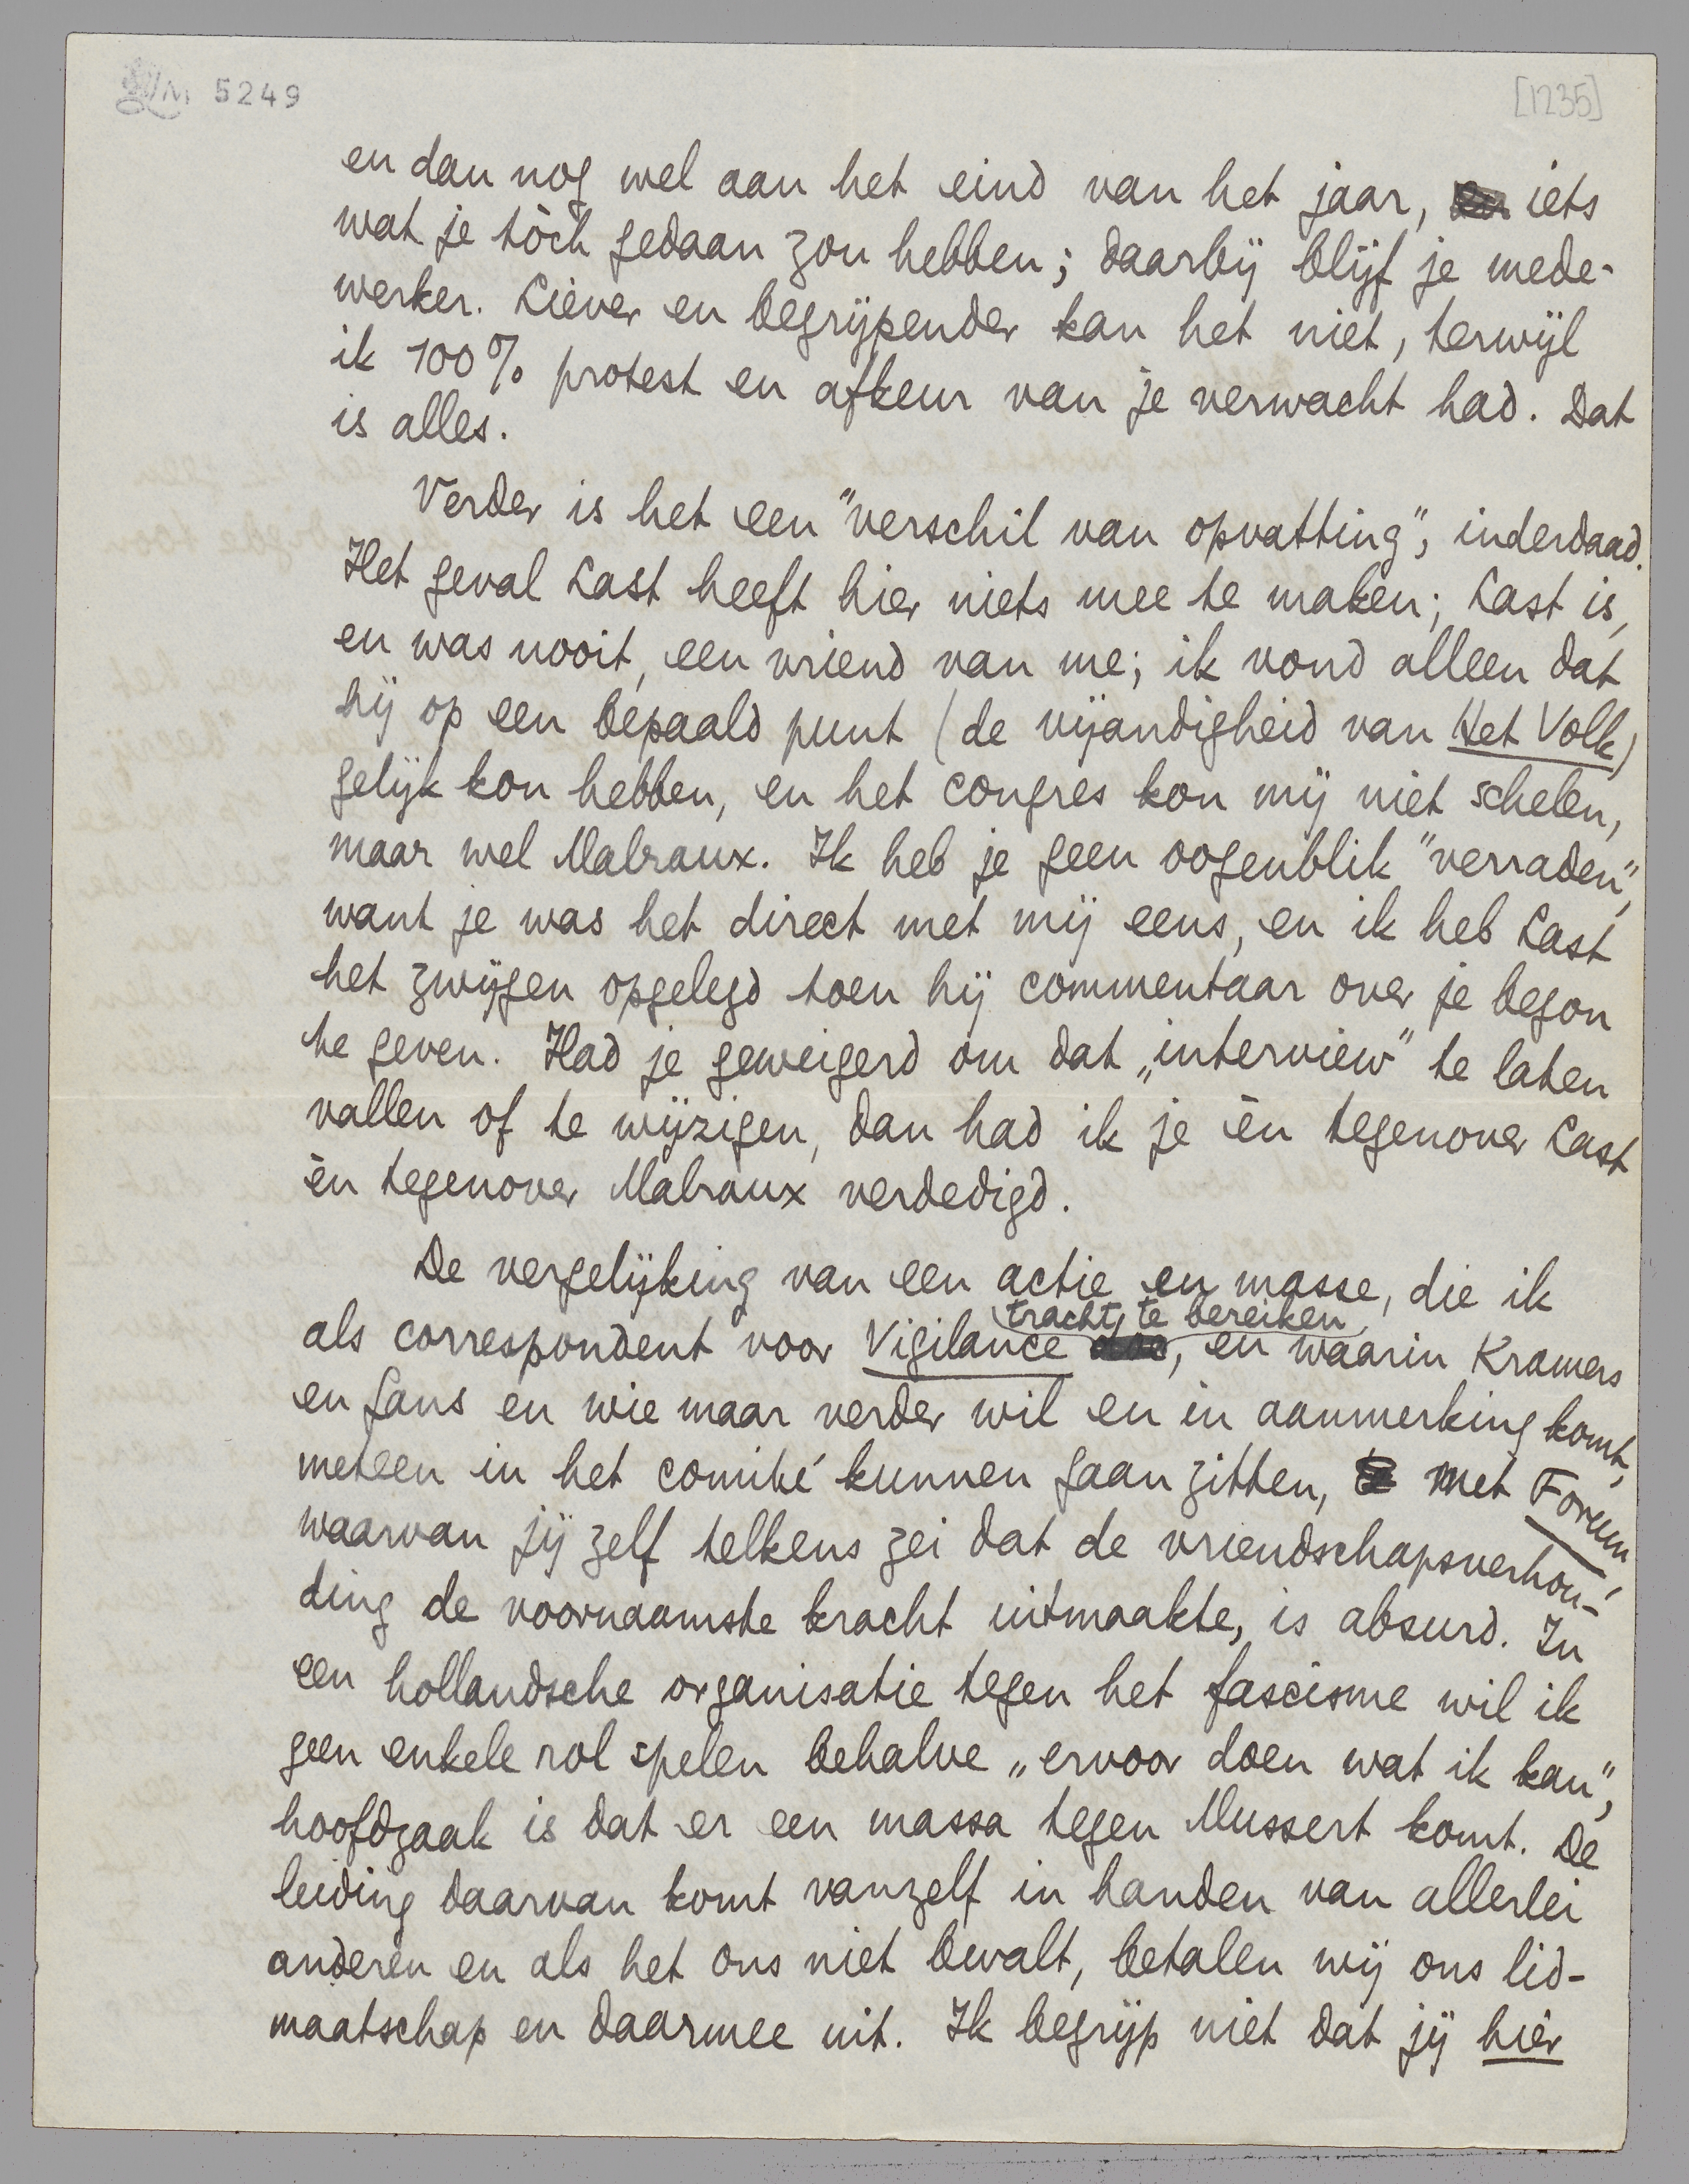 LM 5249
[1235]
en dan nog wel aan het eind van het jaar, iets
wat je tòch gedaan zou hebben; daarbij blijf je mede-
werker. Liever en begrijpender kan het niet, terwijl
ik 100% protest en afkeur van je verwacht had. Dat
is alles.
Verder is het een "verschil van opvatting", inderdaad.
Het geval Last heeft hier niets mee te maken; Last is,
en was nooit, een vriend van me; ik vond alleen dat
hij op een bepaald punt (de vijandigheid van Het Volk)
gelijk kon hebben, en het congres kon mij niet schelen,
maar wel Malraux. Ik heb je geen oogenblik "verraden",
want je was het direct met mij eens, en ik heb Last
het zwijgen opgelegd toen hij commentaar over je begon
te geven. Had je geweigerd om dat „interview" te laten
vallen of te wijzigen, dan had ik je èn tegenover Last
èn tegenover Malraux verdedigd.
De vergelijking van een actie en masse, die ik
als correspondent voor Vigilance tracht te bereiken, en waarin Kramers
en Gans en wie maar verder wil en in aanmerking komt,
meteen in het comité kunnen gaan zitten, met Forum,
waarvan jij zelf telkens zei dat de vriendschapsverhou-
ding de voornaamste kracht uitmaakte, is absurd. In
een hollandsche organisatie tegen het fascisme wil ik
geen enkele rol spelen behalve „ervoor doen wat ik kan",
hoofdzaak is dat er een massa tegen Mussert komt. De
leiding daarvan komt vanzelf in handen van allerlei
anderen en als het ons niet bevalt, betalen wij ons lid-
maatschap en daarmee uit. Ik begrijp niet dat jij hièr